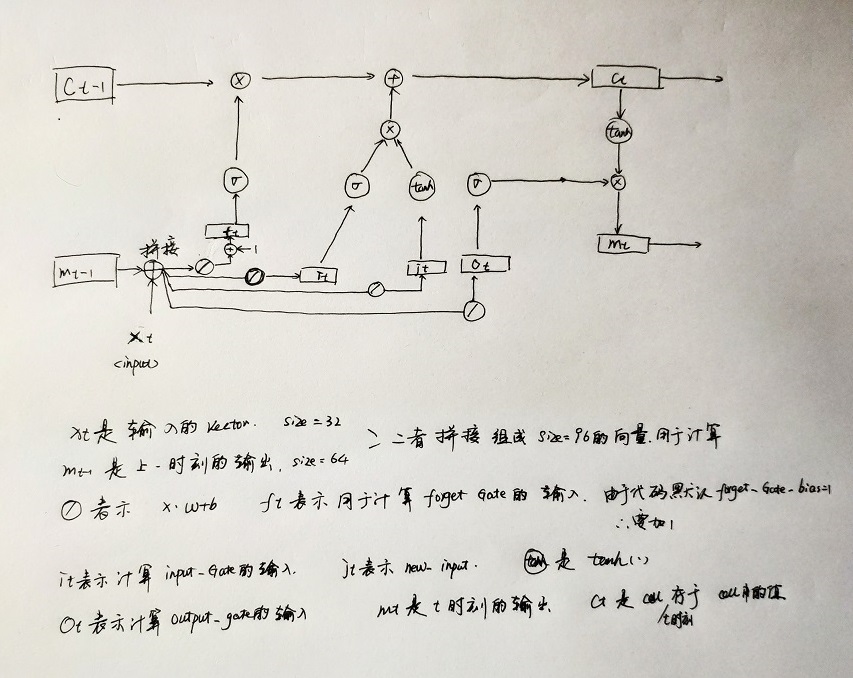 Ct-1 × + Ct
tanh
×
σ σ tanh σ ×
ft
拼接 + 1 mt
mt-1 it jt Ot
xt
<input>
xt是 输入的 vector. size=32
二者 拼接 组成 size=96的向量.用于计算
mt-1 是 上一时刻的输出, size=64
表示 x·w+b ft表示 用于计算 forget Gate 的 输入. 由于代码默认 forget-Gate-bias=1
∴要加1
it表示计算 input-Gate的输入. jt表示 new-input. tanh 是 tanh(·)
Ot表示计算output-gate的输入 mt是 t时刻的输出 Ct 是 cell 存于 cell 中的值
t时刻